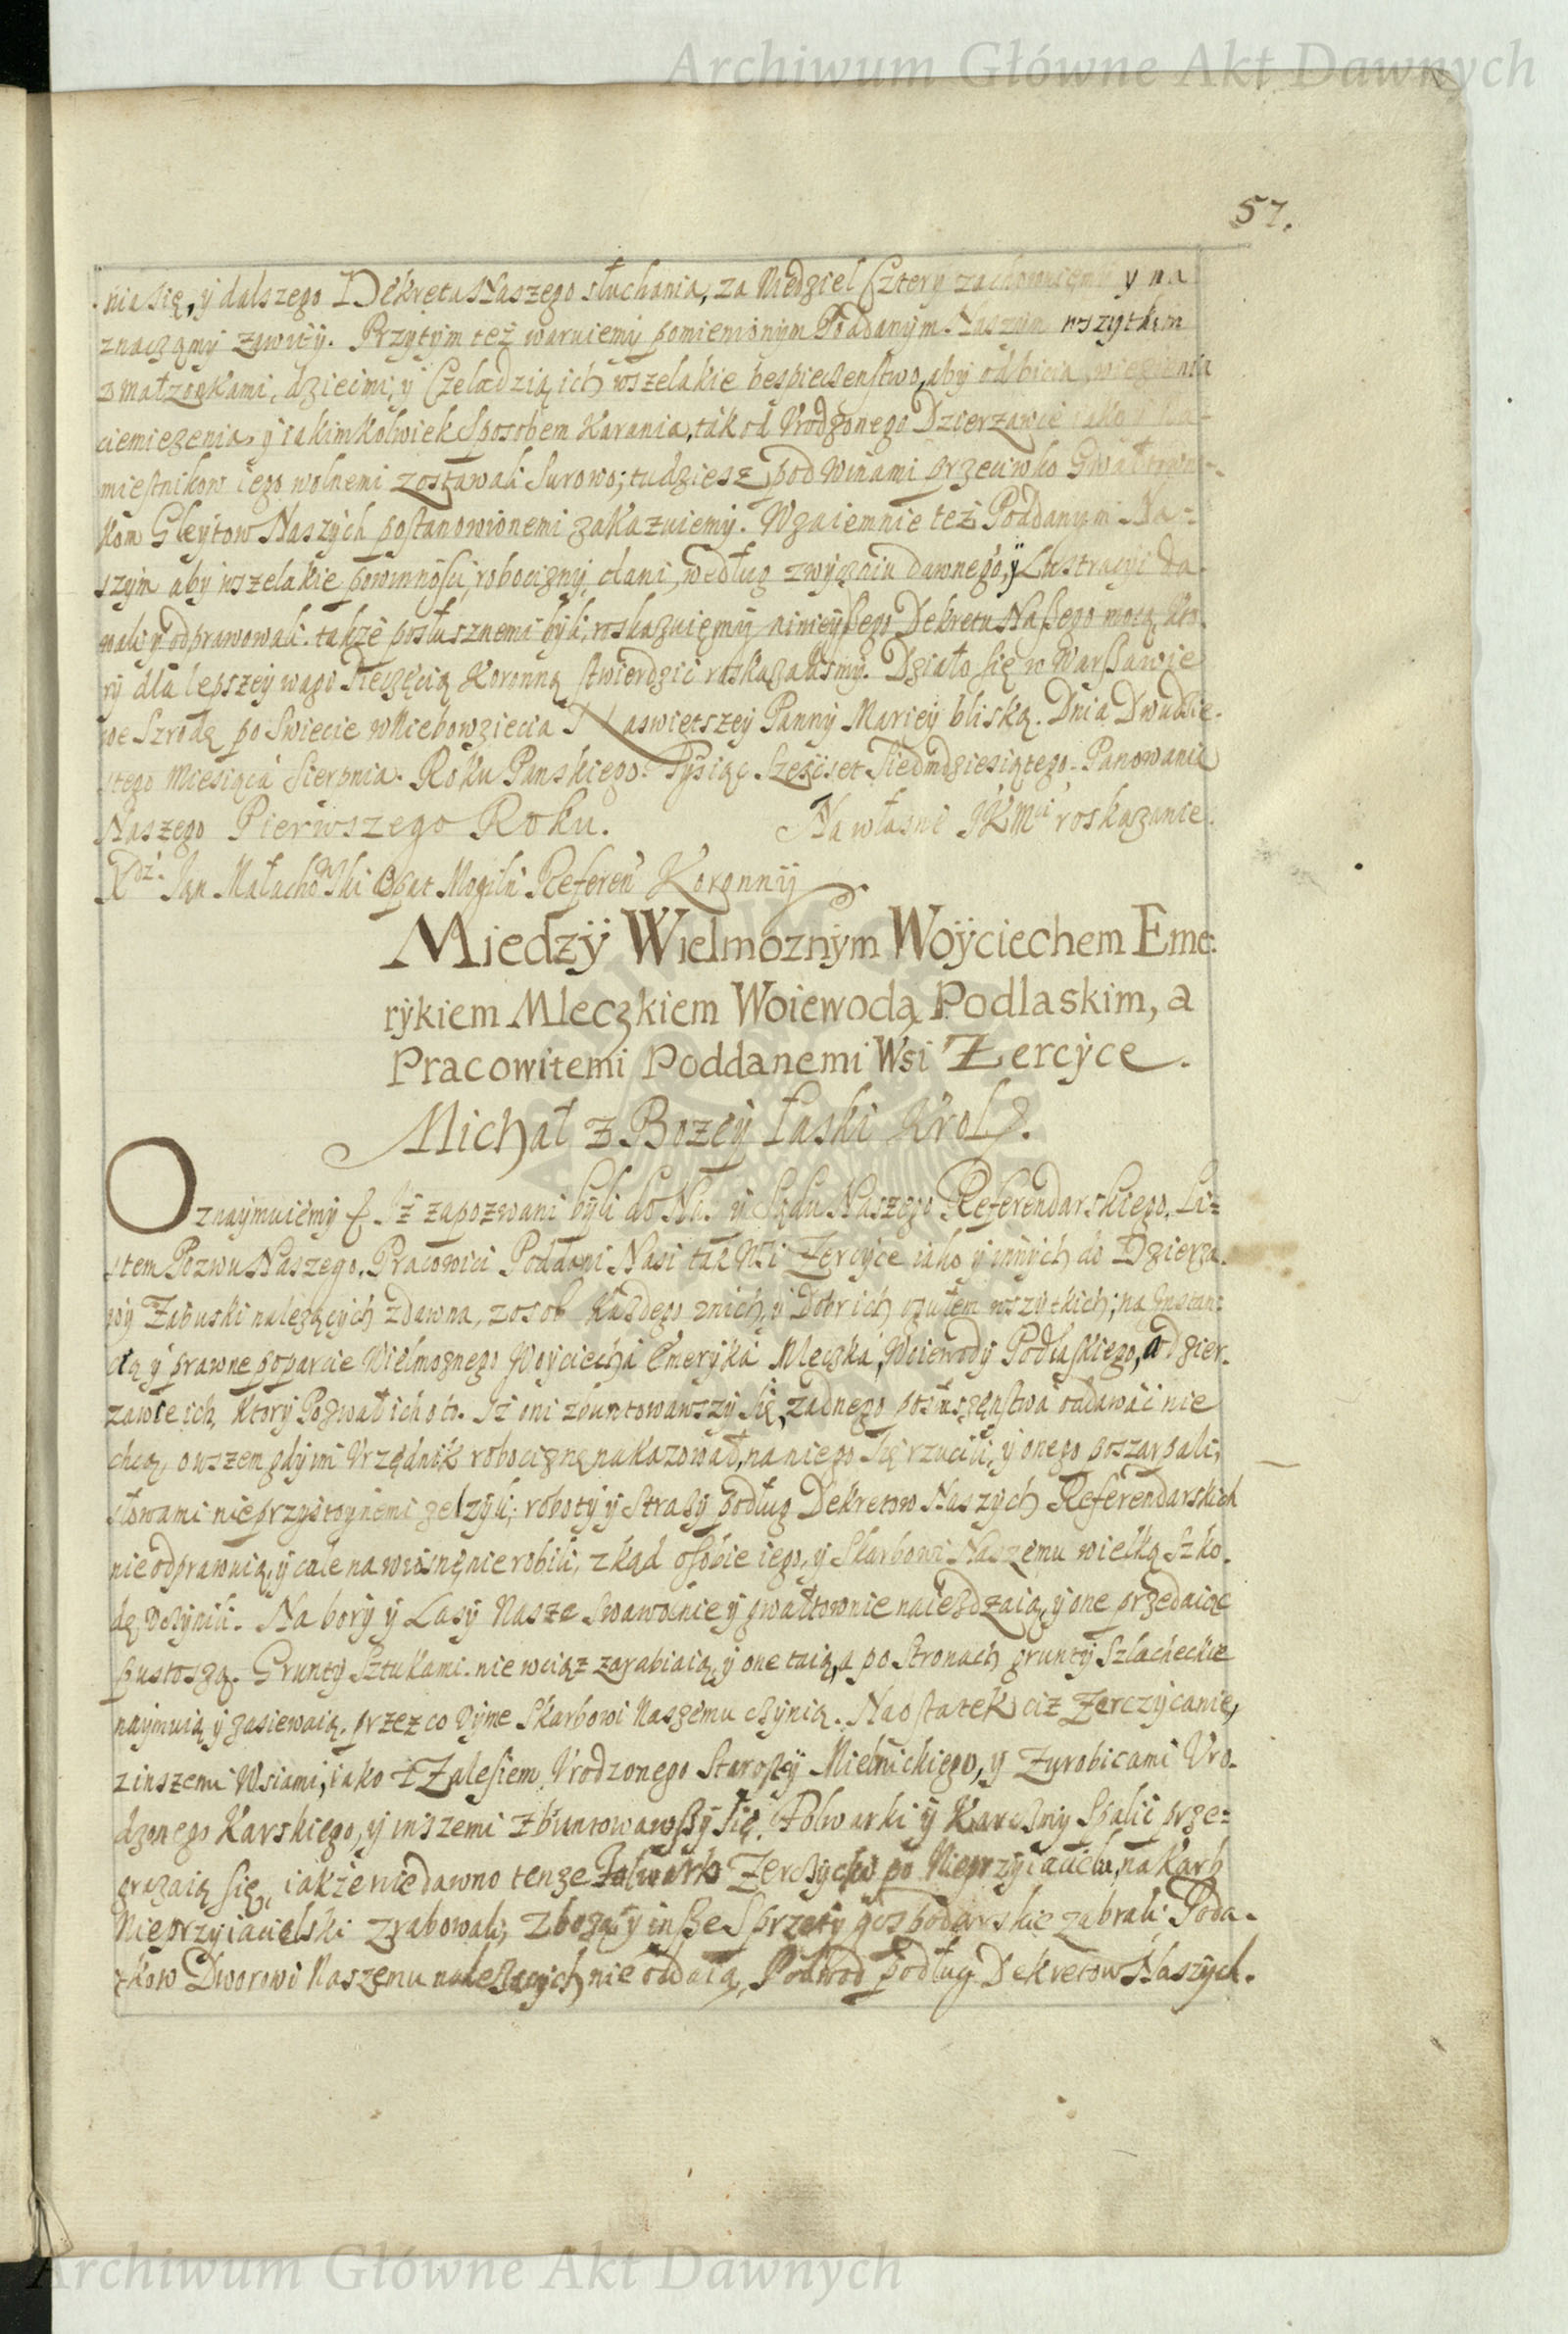 Archiwum Główne Akt Dawnych
57.
nia się, y dalszego Dekretu Naszego słuchania, za Niedziel Cztery zachowuięmy y na
znaczamy zawity. Przytym też waruiemy pomienionym Poddanym Naszym wszytkim
z małzonkami, dziećmi, y Czeladzią ich wszelakie bespieczenstwo, aby od bicia, więzienia
ciemiezenia, y iakimkolwiek sposobem Karania, tak od Vrodzonego Dzierzawce iako y Na-
miestnikow iego wolnemi zostawali Surowo; tudziesz pod Winami przeciwko Gwałtowni-
kom Gleytow Naszych postanowionemi zakazuiemy. Wzaiemnie też Poddanym Na-
szym aby wszelakie powinności, robocizny, dani, według zwyczaiu dawnego, y Lustracyi da
wali y odprawowali. także posłusznemi byli, roskazuięmy ninieyszego Dekretu Naszego mocą kto
ry dla lepszey wagi Pieczęcią Koronną stwierdzić roskazalismy. Działo się w Warszawie
we Szrodę po Swiecie w Niebowziecia Naswiętszey Panny Mariey bliską. Dnia Dwudzie-
stego Miesiąca Sierpnia. Roku Panskiego. Tysiąc Szejset Siedmdziesiątego. Panowania
Naszego Pierwszego Roku. Na własne JKMci roskazanie.
Xdz. Jan Małachowski Opat Mogilń Referen Koronny
Miedzy Wielmoznym Woyciechem Eme-
rykiem Mleczkiem Woiewodą Podlaskim, a
Pracowitemi Poddanemi Wsi Zercyce.
Michał z Bozey łaski Krol.
Oznaymuiemy Iż zapozwani byli do Nas y Sądu Naszego Referendarskiego, Li-
stem Pozwu Naszego, Pracowici Poddani Nasi tak Wsi Zercyce iako y innych do Dzierza-
wy Zabuski nalezących zdawna, z osob każdego z nich, y Dobr ich ogułem wszytkich; na Instan-
cią y prawne poparcie Wielmoznego Woyciecha Emeryka Mleczka, Woiewody Podlaskiego, a dzier-
zawce ich, Ktory Pozwał ich o to. Iż oni zbuntowawszy się, zadnego posłuszęnstwa oddawać nie
chcą, owszem gdy im Vrzędnik robociznę nakazował, na niego się rzucili, y onego poszarpali,
słowami nieprzystoynemi zelzyli; roboty y Straży podług Dekretow Naszych Referendarskich
nie odprawuią, y cale na wiosnę nie robili, zkąd osobie iego, y Skarbowi Naszemu wielką szko-
dę uczynili. Na bory y Lasy Nasze swawolnie y gwałtownie naiezdzaią, y one przedaiąc
pustoszą. Grunty Sztukami nie wciąż zarabiaią, y one taią, a po Stronach grunty Szlacheckie
naymuią y zasiewaią. przez co Dyme Skarbowi Naszemu czynią. Naostatek ciż Zerczycanie,
z inszemi Wsiami, iako z Zalesiem Vrodzonego Starosty Mielnickiego, y Zyrobicami Vro-
dzonego Karskiego, y inszemi zbuntowawszy się, Folwarki y Karczmy Spalić prze-
grazaią się, iakże niedawno tenze Folwark Zerczycki po Nieprzyiacielu, na karb
Nieprzyiacielski zrabowali, zboża y insze Sprzęty gospodarskie zabrali: Poda-
tkow Dworowi Naszemu nalezących nie oddaią, Podwod podług Dekretow Naszych.
Archiwum Główne Akt Dawnych